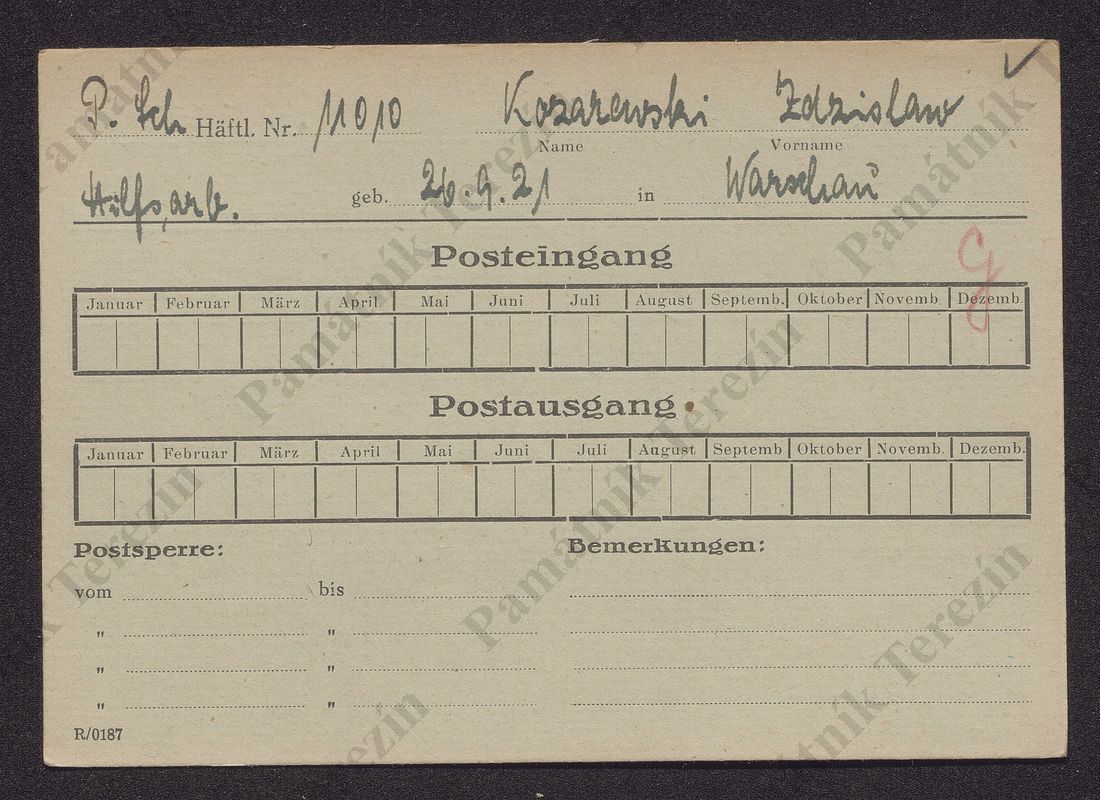 P. Sch Häftl. Nr. 11010 Kozarewski Zdzislaw
Name Vorname
Hilfsarb. geb. 26.9.21 in Warschau
Posteingang
Januar Februar März April Mai Juni Juli August Septemb. Oktober Novemb. Dezemb.
Postausgang
Januar Februar März April Mai Juni Juli August Septemb Oktober Novemb. Dezemb.
Postsperre: Bemerkungen:
vom bis
„ „
„ „
„ „
R/0187
Památník Terezín